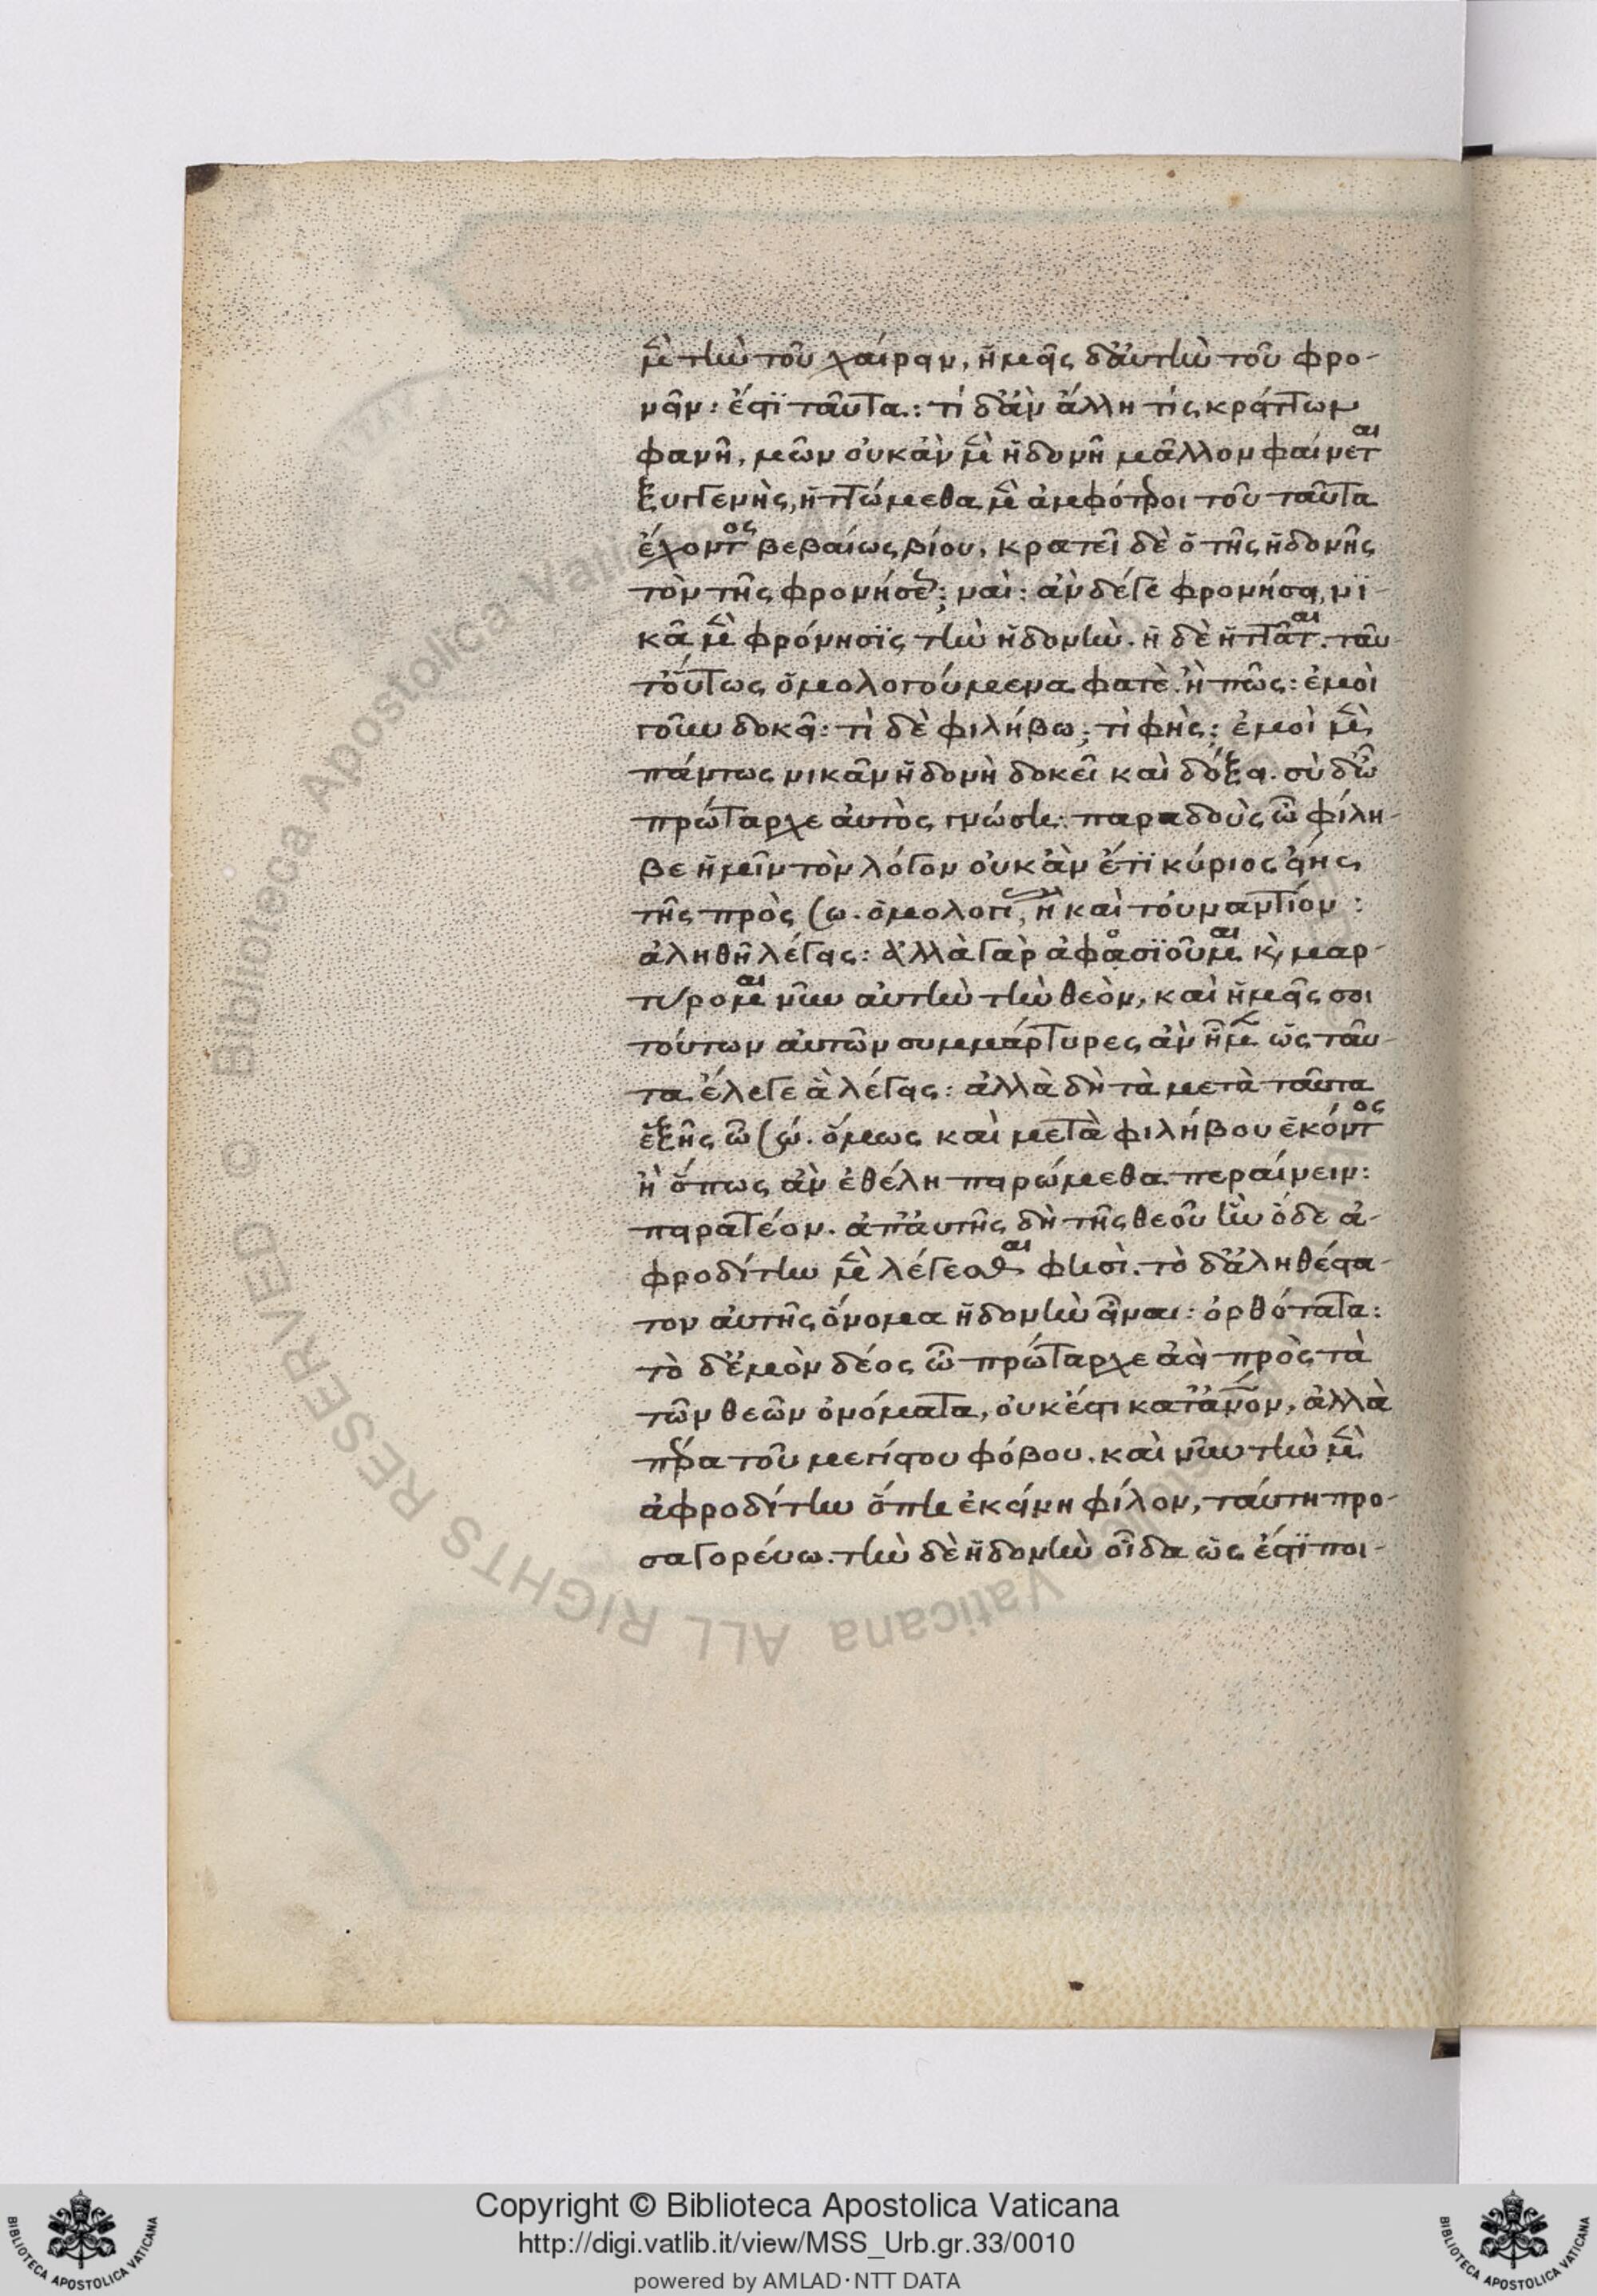 μὲν τὴν τοῦ χαίρειν, ἡμεῖς δ' αὐτὴν τοῦ φρο-
νεῖν: ἔστι ταῦτα: τί δ' ἂν ἄλλη τίς κρείττων
φανῇ, μῶν οὐκ ἂν μὲν ἡδονῇ μᾶλλον φαίνεται
ξυγγενὴς, ἡττώμεθα μὲν ἀμφότεροι τοῦ ταῦτα
ἔχοντος βεβαίως βίου, κρατεῖ δὲ ὁ τῆς ἡδονῆς
τὸν τῆς φρονήσεως; ναὶ: ἂν δέ γε φρονήσει, νι-
κᾶ μὲν φρόνησις τὴν ἡδονὴν. ἡ δὲ ἡττᾶται. ταῦ
τ' οὕτως ὁμολογούμενα φατὲ. ἢ πῶς: ἐμοὶ
γοῦν δοκεῖ: τὶ δὲ φιλήβω; τὶ φῆς; ἐμοὶ μὲν
πάντως νικᾶν ἡδονὴ δοκεῖ καὶ δόξει. σὺ δ' ὦ
πρώταρχε αὐτὸς γνώσῃ: παραδοὺς ὦ φίλη-
βε ἡμῖν τὸν λόγον οὐκ ἂν ἔτι κύριος εἴης
τῆς πρὸς σω. ὁμολογίας, ἢ καὶ τοὐναντίον:
ἀληθῆ λέγεις: ἀλλὰ γὰρ ἀφοσιοῦμαι καὶ μαρ-
τύρομαι νῦν αὐτὴν τὴν θεὸν, καὶ ἡμεῖς σοι
τούτων αὐτῶν συμμάρτυρες ἂν ἦμεν ὡς ταῦ-
τα ἔλεγε ἃ λέγεις: ἀλλὰ δὴ τὰ μετὰ ταῦτα
ἑξῆς ὦ σώ. ὅμως καὶ μετὰ φιλήβου ἑκόντος
ἢ ὅπως ἂν ἐθέλη πειρώμεθα περαίνειν:
πειρατέον. ἀπ' αὐτῆς δὴ τῆς θεοῦ ἣν ὅδε ἀ-
φροδίτην μὲν λέγεσθαι φησὶ. τὸ δ' ἀληθέστα-
τον αὐτῆς ὄνομα ἡδονὴν εἶναι: ὀρθότατα:
τὸ δ' ἐμὸν δέος ὦ πρώταρχε ἀεὶ πρὸς τὰ
τῶν θεῶν ὀνόματα, οὐκ ἔστι κατ' ἄνθρωπον, ἀλλὰ
πέρα τοῦ μεγίστου φόβου. καὶ νῦν τὴν μὲν
ἀφροδίτην ὅπῃ ἐκείνη φίλον, ταύτη προ-
σαγορεύω. τὴν δὲ ἡδονὴν οἶδα ὡς ἔστι ποι-
BIBLIOTECA APOSTOLICA VATICANA
Copyright © Biblioteca Apostolica Vaticana
http://digi.vatlib.it/view/MSS_Urb.gr.33/0010
powered by AMLAD·NTT DATA
BIBLIOTECA APOSTOLICA VATICANA
Biblioteca Apostolica Vaticana ALL RIGHTS RESERVED ©